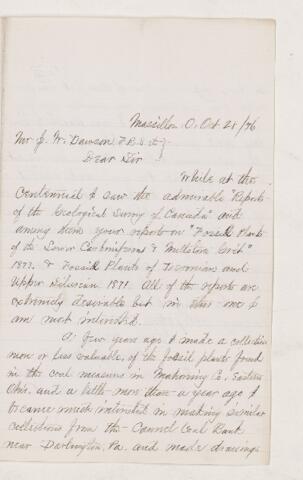 Massillon O. Oct 28/76
Mr J. W. Dawson F.R.S. &c }
Dear Sir
While at the
Centennial I saw the admirable "Reports
of the Geological Survey of Canada" and
among them your reports on "Fossil Plants
of the Lower Carboniferous & Millstone Grit"
1873. & Fossil Plants of Devonian and
Upper Silurian 1871. All of the reports are
extremely desirable but in these one I
am most interested.
A few years ago I made a collection
more or less valuable, of the fossil plants found
in the coal measures in Mahoning Co. Eastern
Ohio. and a little more than a year ago I
became much interested in making similar
collections from the Cannel Coal Bank
near Darlington, Pa. and made drawings